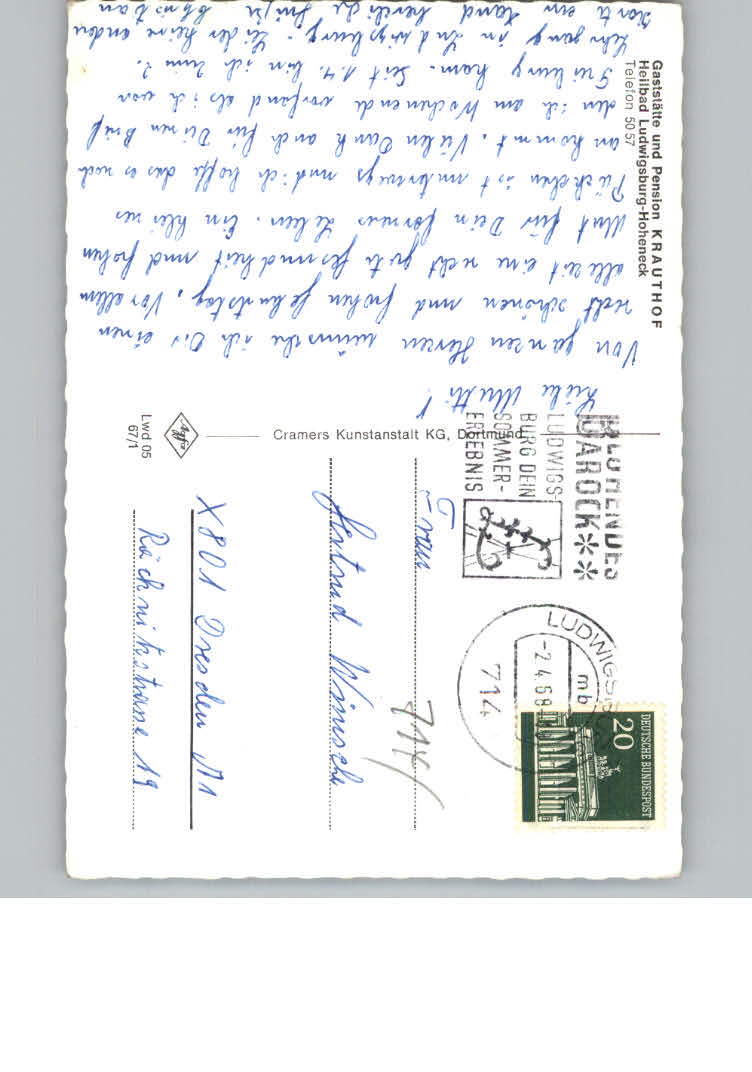 Gaststätte und Pension KRAUTHOF
Heilbad Ludwigsburg-Hoheneck
Telefon 50 57
Liebe Mutti!
Von ganzen Herzen wünsche ich Dir einen
recht schönen und frohen Geburtstag, Vor allem
alle zeit eine recht gute Gesundheit und frohen
Mut für Dein ferneres Leben. Ein kleines
Päckchen ist unterwegs und ich hoffe das es noch
an kommt. Vielen Dank auch für Deinen Brief
den ich am Wochenende vorfand als ich von
Freiburg kam. Seit 1.4. bin ich zum 2.
Lehrgang in Ludwigsburg. Leider keine andere
Karte zur Hand herzliche Grüße
Cramers Kunstanstalt KG, Dortmund
Agfa
Lwd 05
67/1
BLÜHENDES
BAROCK
LUDWIGS-
BURG DEIN
SOMMER-
ERLEBNIS
LUDWIGSBURG
mb
-2.4.68-
714
DEUTSCHE BUNDESPOST
20
Frau
Gertrud Wünsche
714/
X 801 Dresden A1
Räcknitzstrasse 19